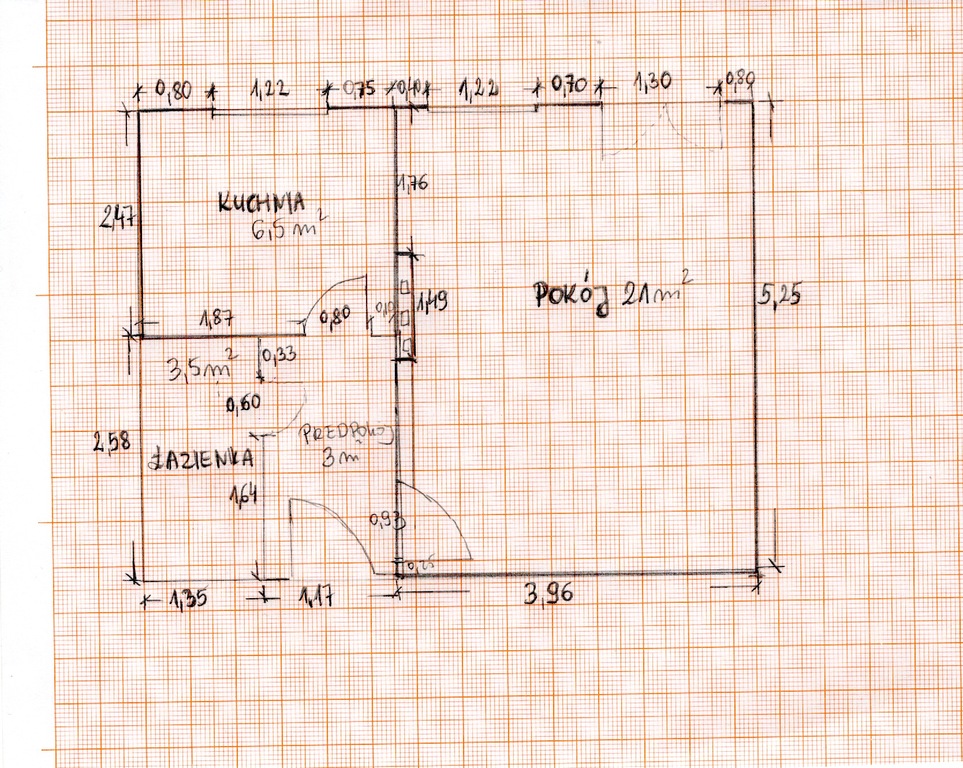 0,80 1,22 0,75 0,40 1,22 0,70 1,30 0,80
1,76
2,47
KUCHNIA
6,5 m²
POKÓJ 21 m²
5,25
1,49
1,87
0,80
3,5 m²
0,33
0,60
2,58
PREDPOKÓJ
3 m
ŁAZIENKA
1,64
0,93
0,25
1,35
1,17
3,96